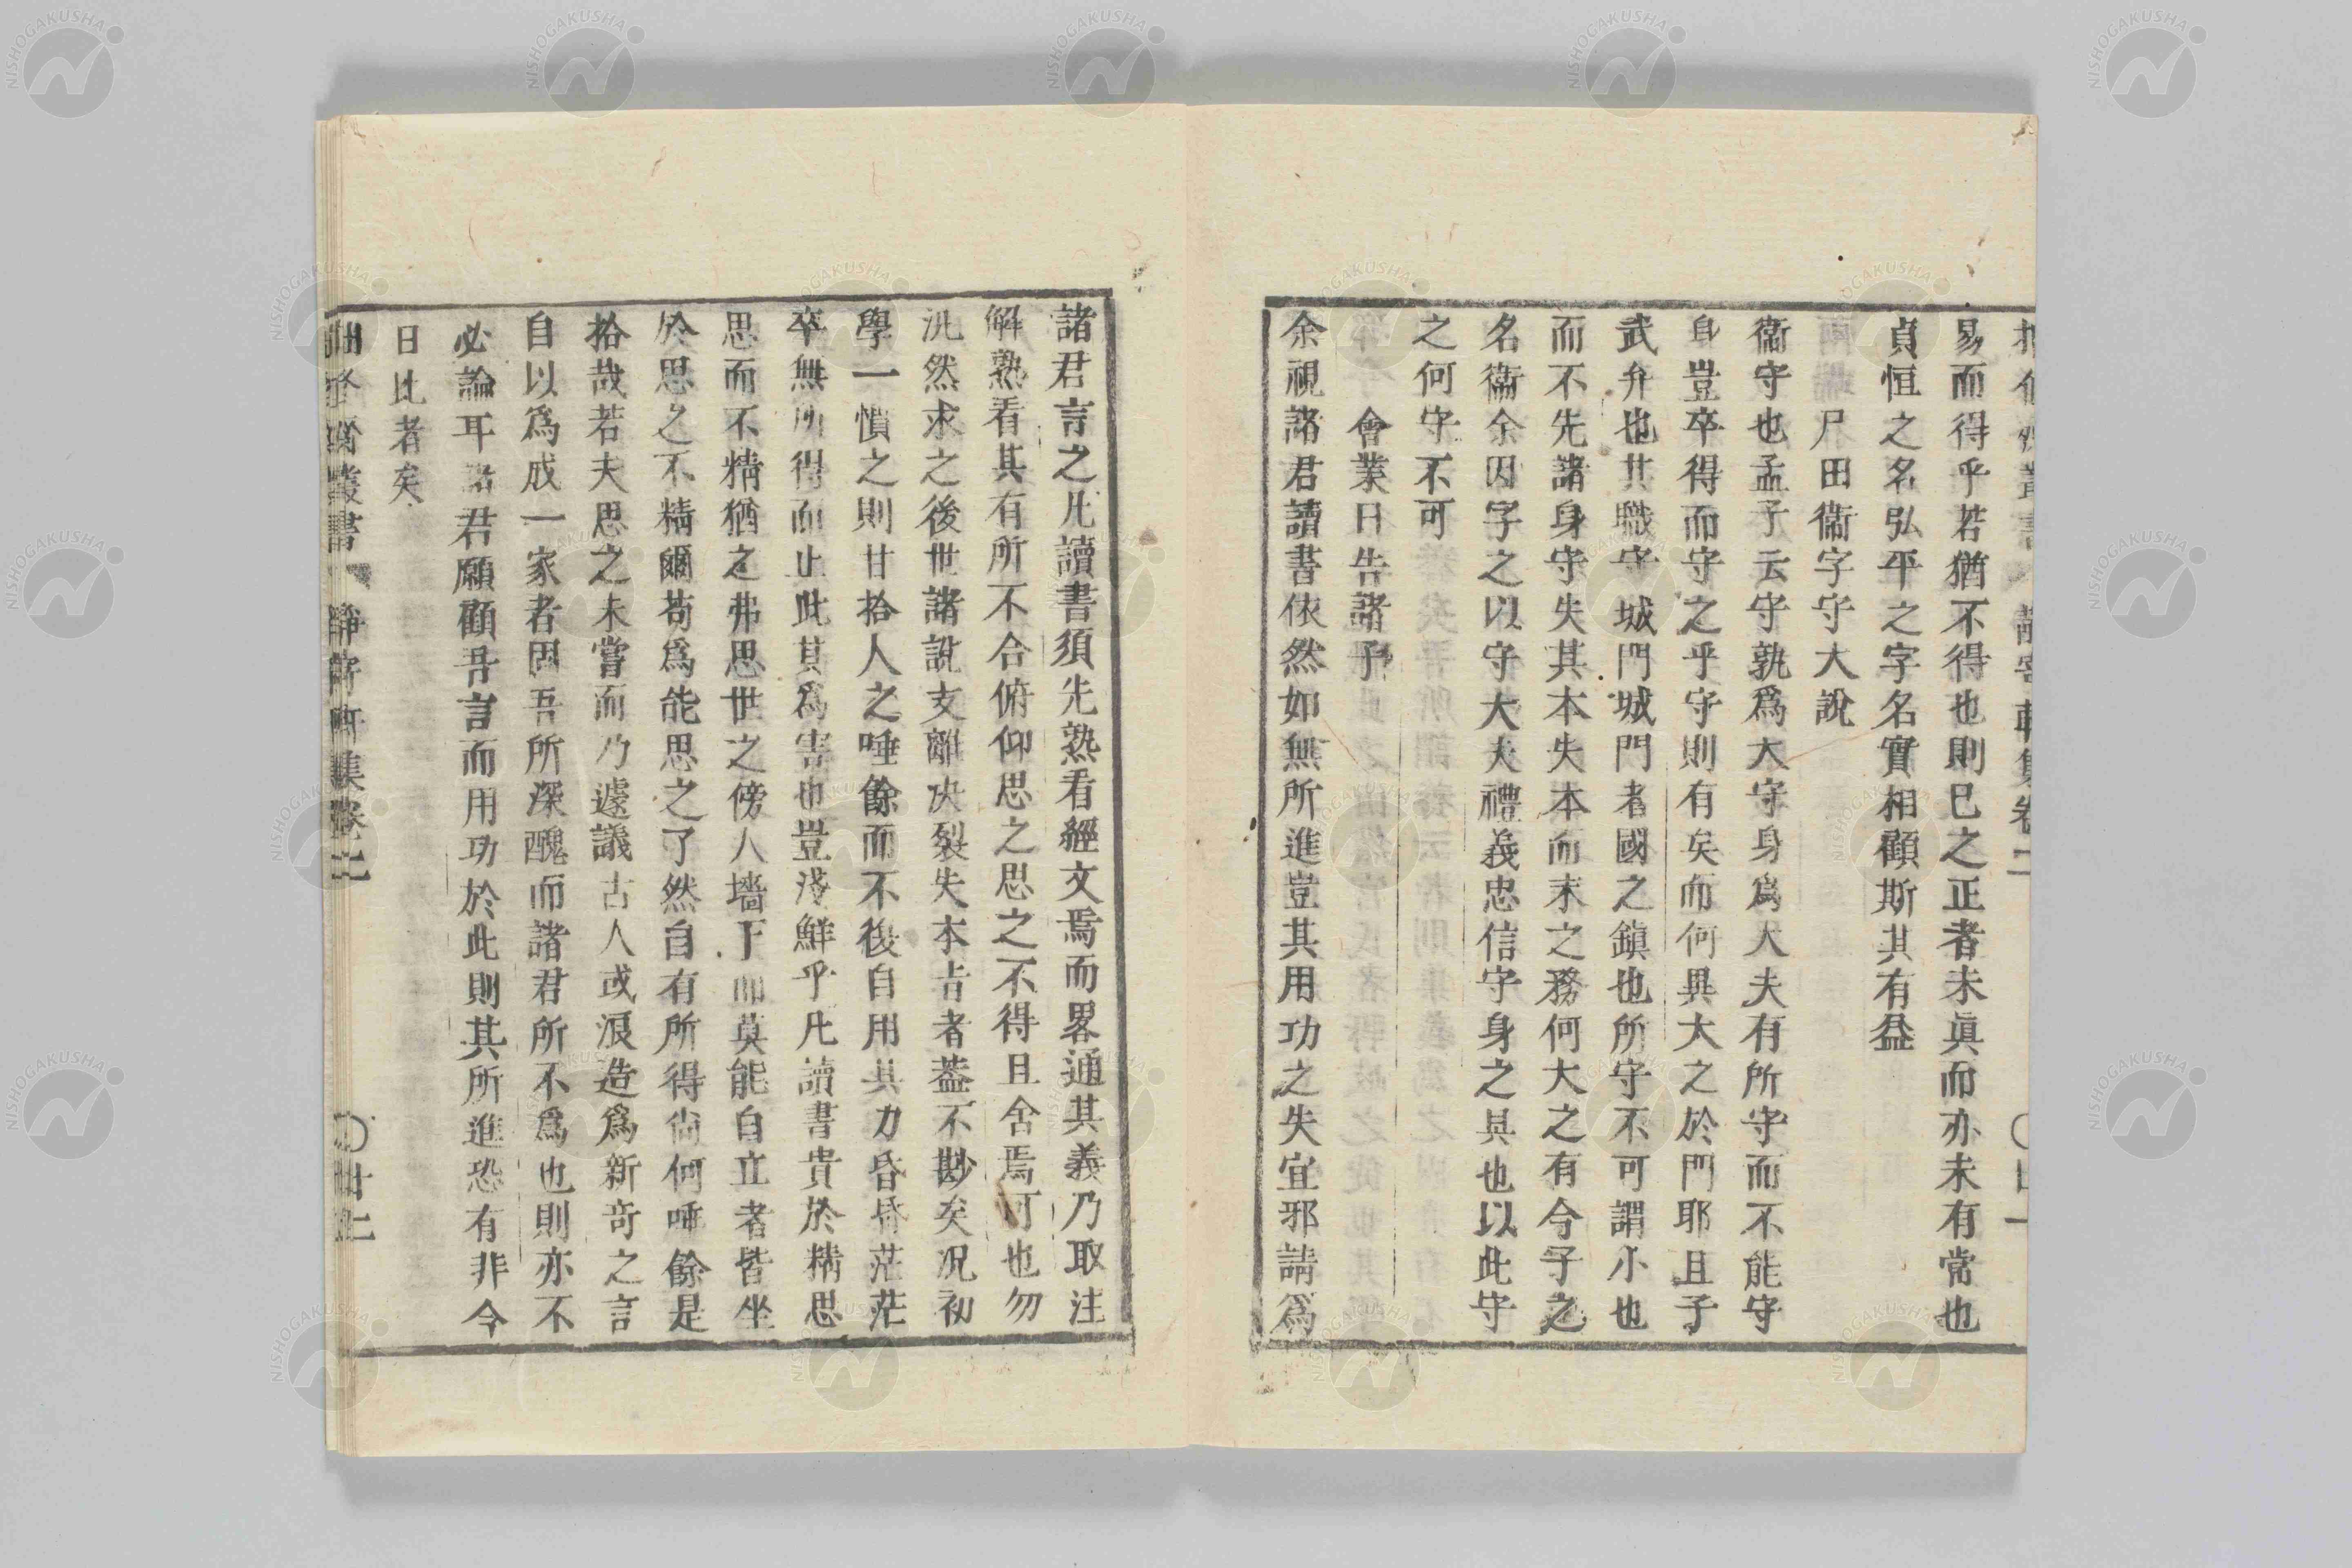 易而得乎若猶不得也則已之正者未眞而亦未有常也
貞恒之名弘平之字名實相顧斯其有益
尸田衞字守大說
衞守也孟子云守孰爲大守身爲大夫有所守而不能守
身豈卒得而守之乎守則有矣而何異大之於門耶且子
武弁也其職守城門城門者國之鎭也所守不可謂小也
而不先諸身守失其本失本而末之務何大之有今子之
名衞余因字之以守大夫禮義忠信守身之具也以此守
之何守不可
會業日告諸子
余視諸君讀書依然如無所進豈其用功之失宜邪請爲
諸君言之凡讀書須先熟看經文焉而畧通其義乃取注
解熟看其有所不合俯仰思之思之不得且舍焉可也勿
汎然求之後世諸說支離决裂失本旨者葢不尠矣况初
學一慣之則甘拾人之唾餘而不復自用其力昏昏茫茫
卒無所得而止此其爲害也豈淺鮮乎凡讀書貴於精思
思而不精猶之弗思世之傍人墻下而莫能自立者皆坐
於思之不精爾苟爲能思之了然自有所得尙何唾餘是
拾哉若夫思之未嘗而乃遽議古人或浪造爲新奇之言
自以爲成一家者固吾所深醜而諸君所不爲也則亦不
必論耳諸君願顧吾言而用功於此則其所進恐有非今
日比者矣
叢書 靜寄軒集卷之二 〇